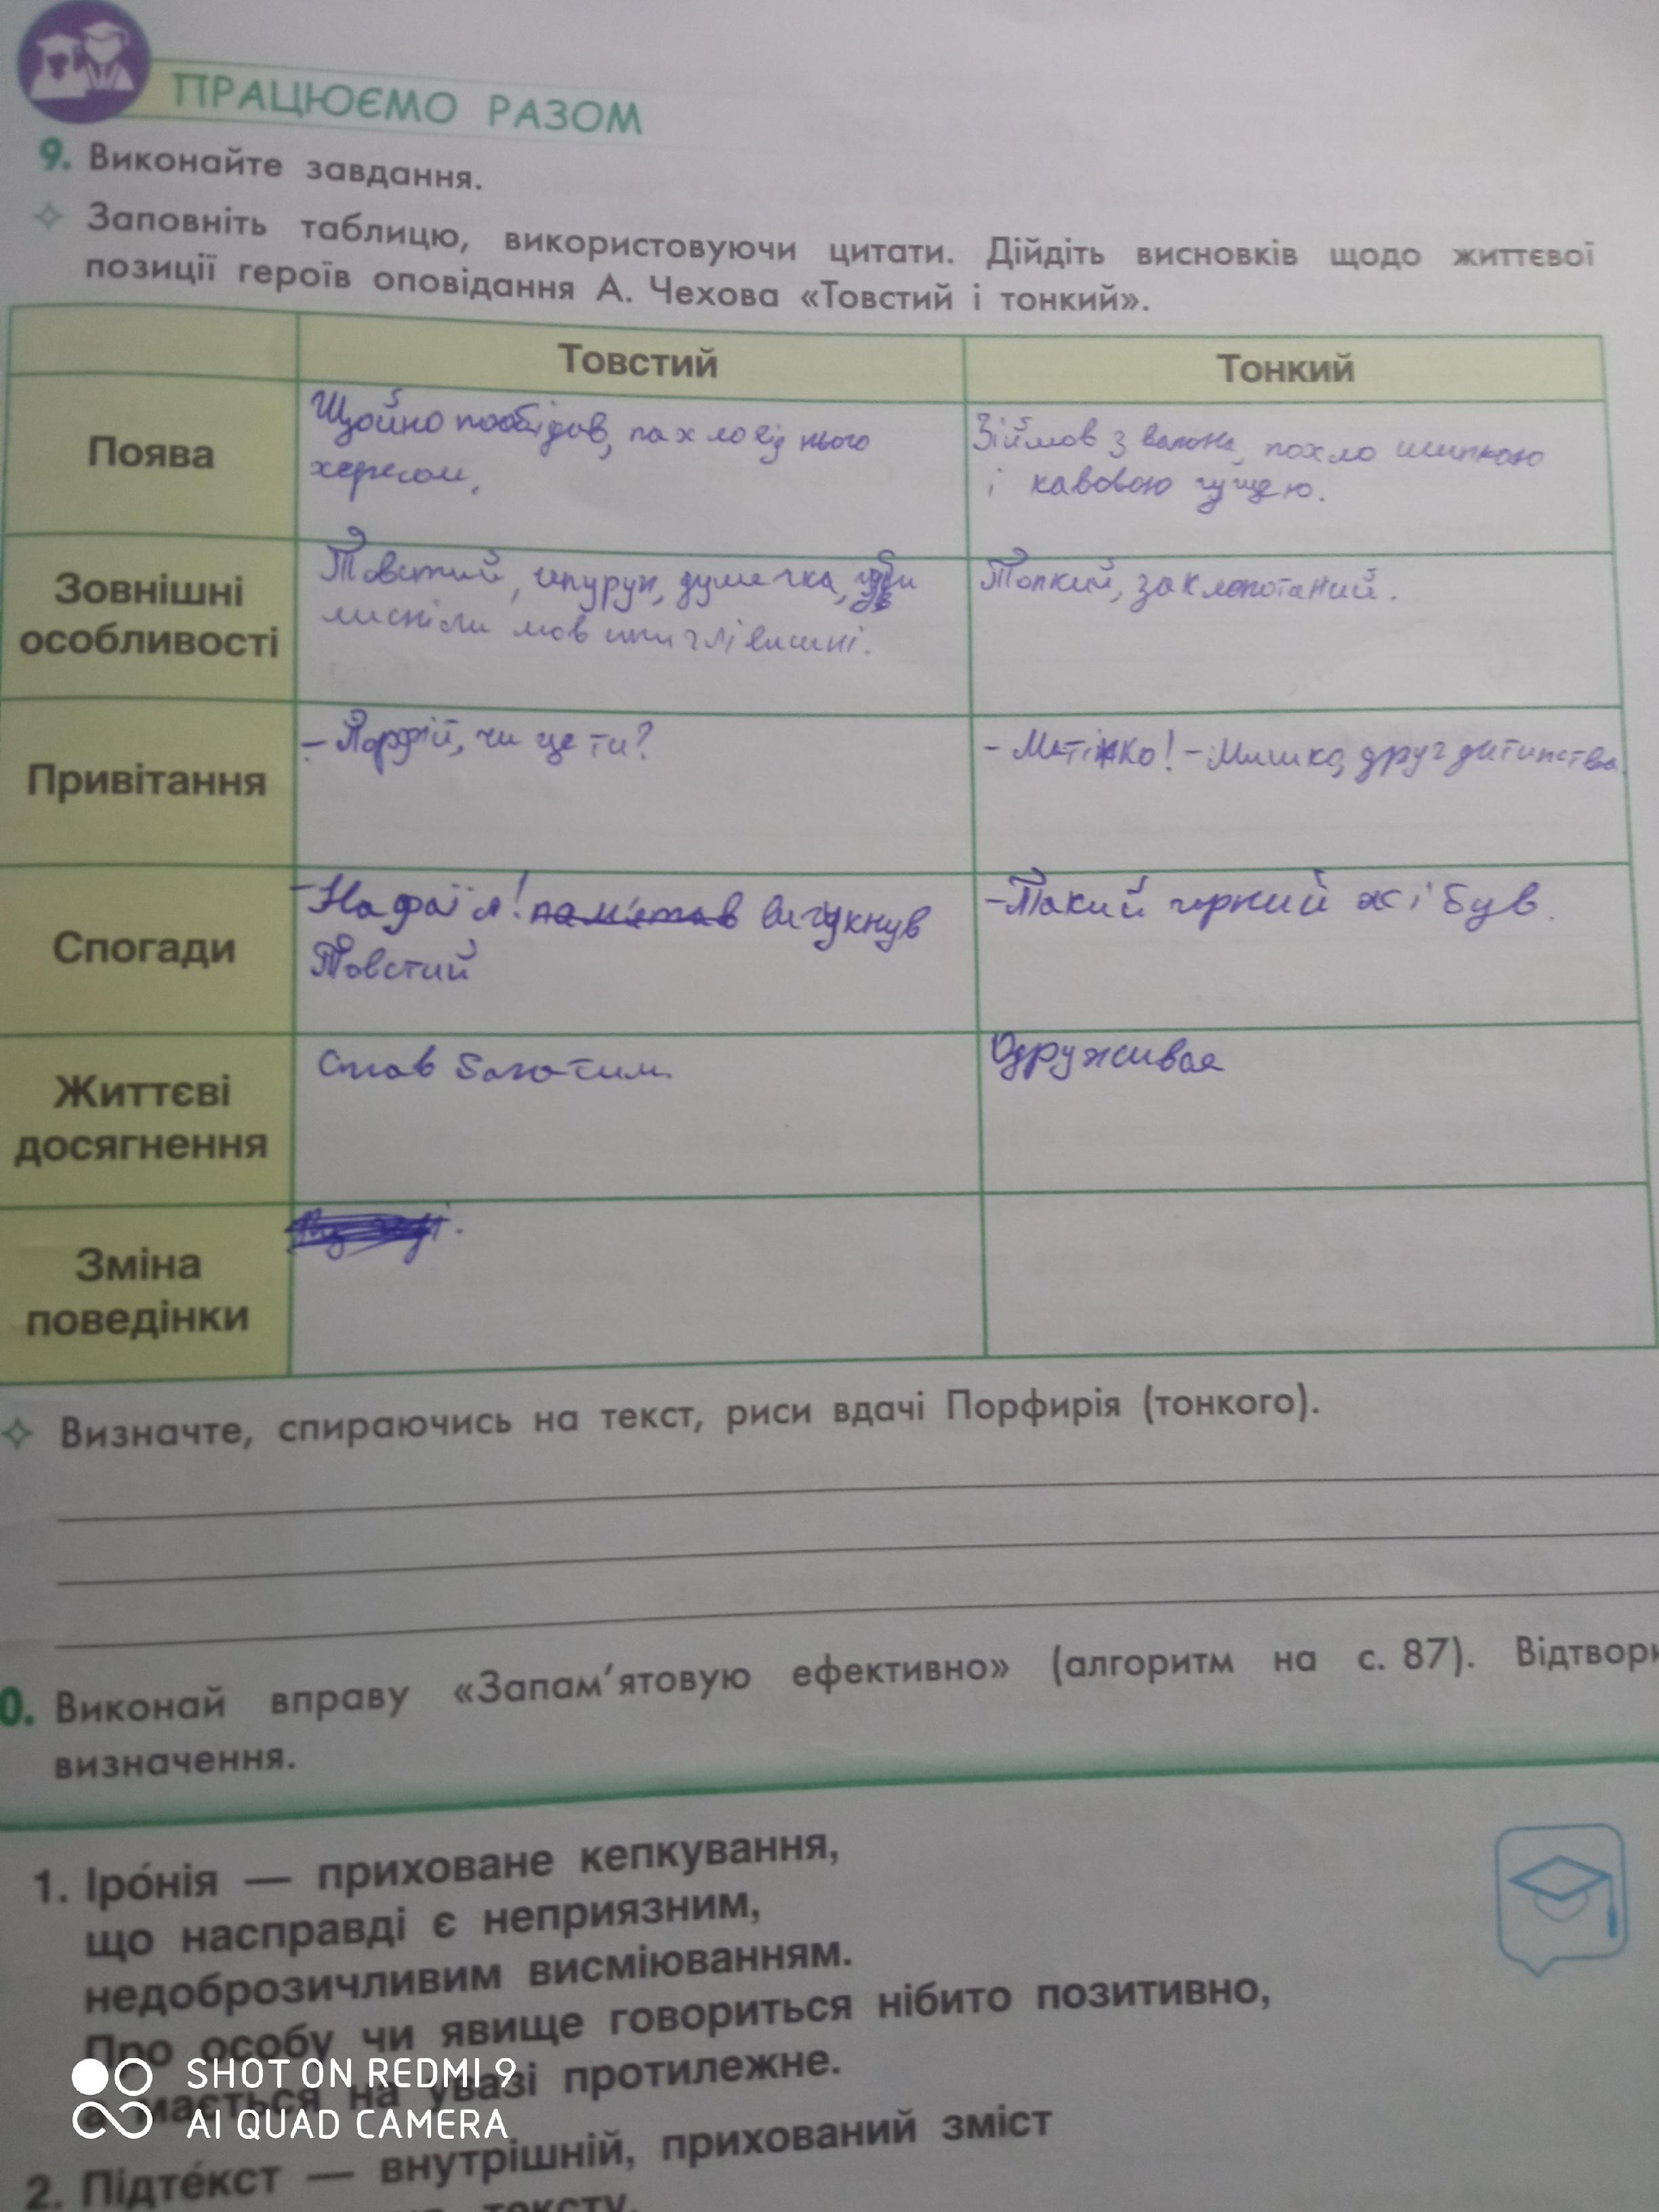 ПРАЦЮЄМО РАЗОМ
9. Виконайте завдання.
Заповніть таблицю, використовуючи цитати. Дійдіть висновків щодо життєвої
позиції героїв оповідання А. Чехова «Товстий і тонкий».
Товстий
Тонкий
Поява
Щойно пообідав, пахло від нього
хересом,
Зіймов з вагона, похло шинкою
і кавовою гущею.
Зовнішні
особливості
Товстий, душечка, губи
лисніли мов стиглі вишні.
Тонкий, заклопотаний.
Привітання
- Порфій, чи це ти?
- Матінко! - Мишко, друг дитинства.
Спогади
- вигукнув
Товстий
- Такий гарний ж і був.
Життєві
досягнення
Став багатим.
Одружився
Зміна
поведінки
Визначте, спираючись на текст, риси вдачі Порфирія (тонкого).
0. Виконай вправу «Запам'ятовую ефективно» (алгоритм на с. 87). Відтвори
визначення.
1. Іро́нія — приховане кепкування,
що насправді є неприязним,
недоброзичливим висміюванням.
Про особу чи явище говориться нібито позитивно,
а мається на увазі протилежне.
2. Підте́кст — внутрішній, прихований зміст
тексту.
SHOT ON REDMI 9
AI QUAD CAMERA